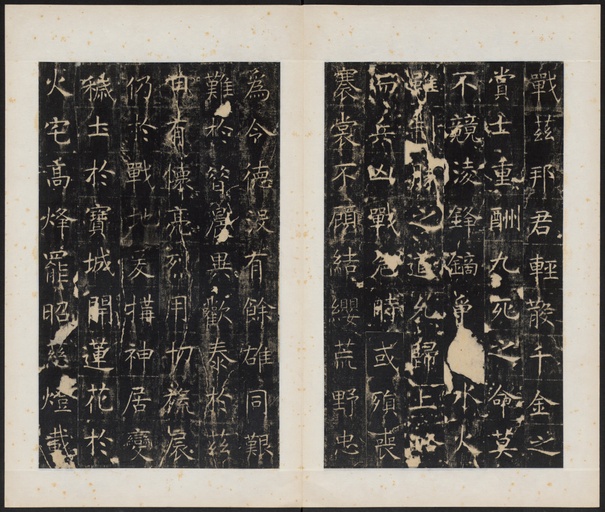 戰茲邦君輕散千金之
賞士重酬九死之命莫
不競淩鋒鏑爭水火
雖勝之道允歸上
而兵凶戰危時或殞喪
褰裳不顧結纓荒野忠
為令德沒有餘雄同艱
難於昔晨異歡泰於茲
有懷亮烈用切旒扆
仍於戰地爰構神居變
穢土於寶城開蓮花於
火宅高烽罷昭慈燈載